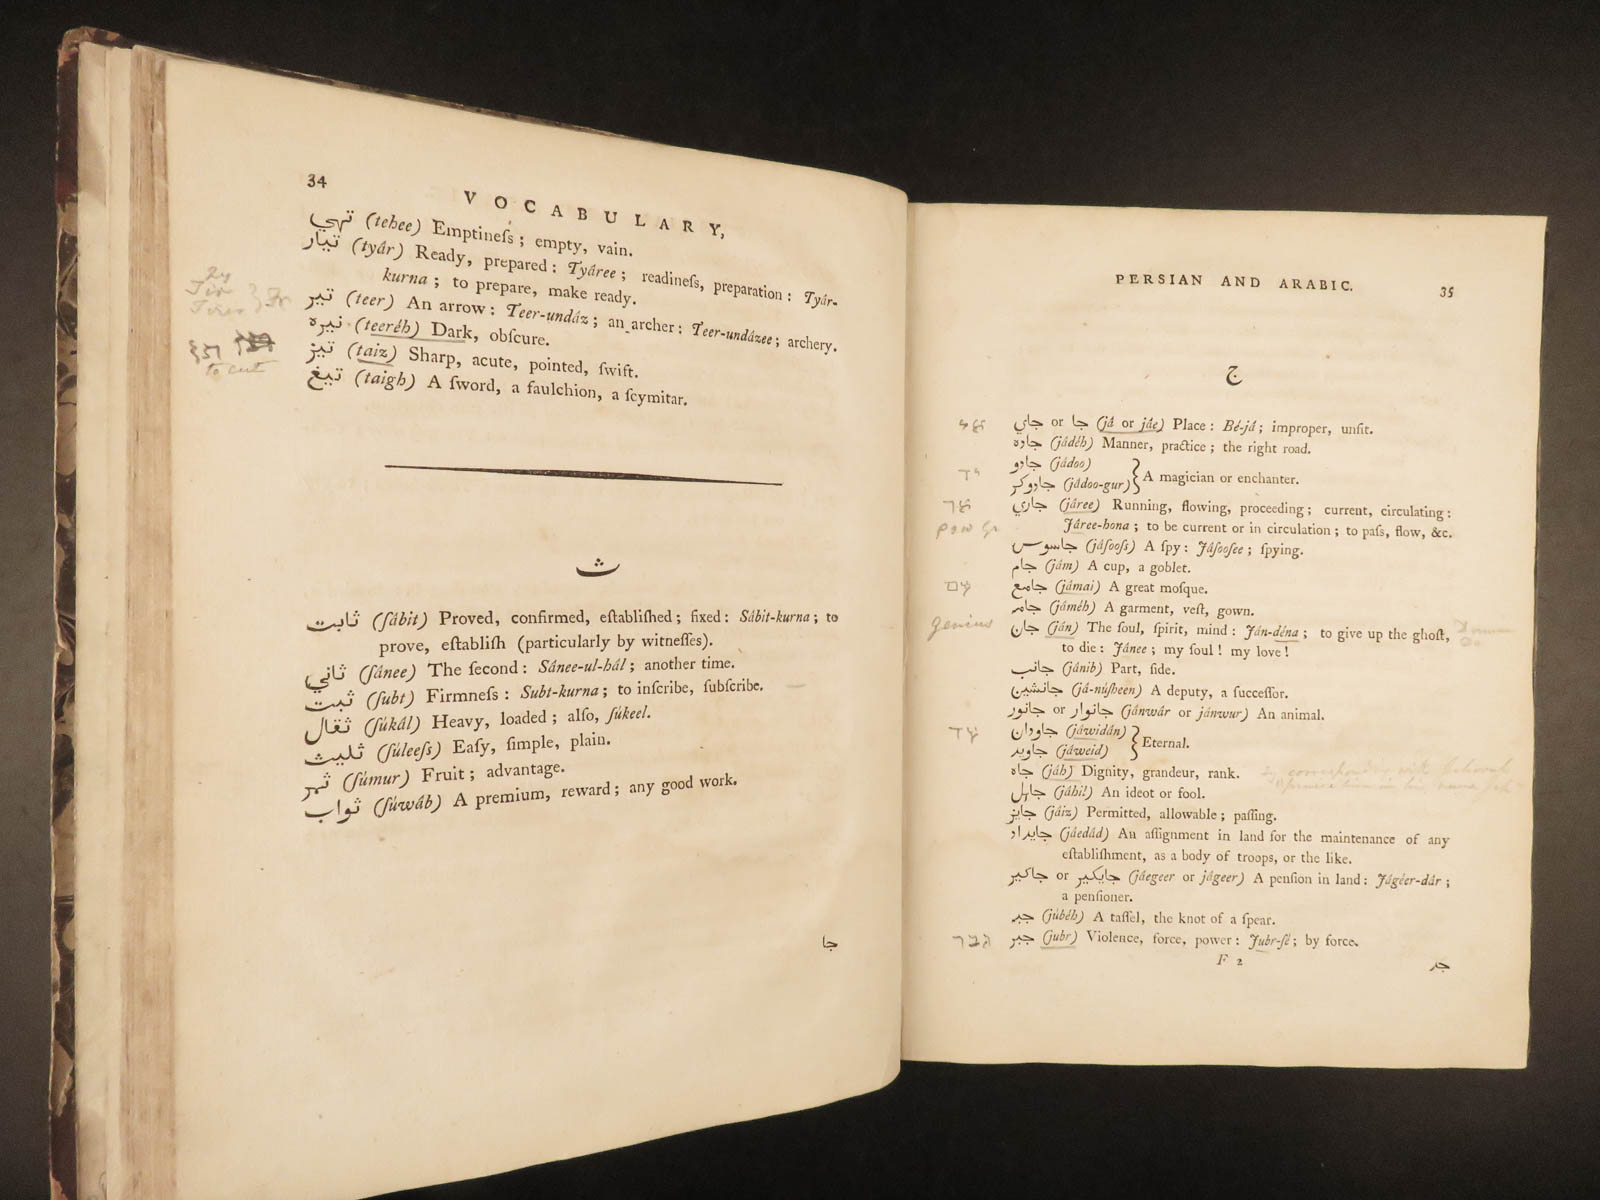 34
VOCABULARY,
تهي (tehee) Emptineſs; empty, vain.
تيار (tyâr) Ready, prepared: Tyâree; readineſs, preparation: Tyâr-
kurna; to prepare, make ready.
تير (teer) An arrow: Teer-undáz; an archer: Teer-undázee; archery.
تيره (teeréh) Dark, obſcure.
تيز (taiz) Sharp, acute, pointed, ſwift.
تيغ (taigh) A ſword, a faulchion, a ſcymitar.
to cut
ث
ثابت (ſábit) Proved, confirmed, eſtabliſhed; fixed: Sábit-kurna; to
prove, eſtabliſh (particularly by witneſſes).
ثاني (ſánee) The ſecond: Sánee-ul-hál; another time.
ثبت (ſubt) Firmneſs: Subt-kurna; to inſcribe, ſubſcribe.
ثقال (ſúkál) Heavy, loaded; alſo, ſúkeel.
ثليث (ſúleeſs) Eaſy, ſimple, plain.
ثمر (ſúmur) Fruit; advantage.
ثواب (ſúwáb) A premium, reward; any good work.
جا
PERSIAN AND ARABIC.
35
ج
جاي or جا (já or jáe) Place: Bé-já; improper, unfit.
جاده (jádéh) Manner, practice; the right road.
جادو (jádoo)
جادوكر (jádoo-gur) } A magician or enchanter.
جاري (járee) Running, flowing, proceeding; current, circulating:
Járee-hona; to be current or in circulation; to paſs, flow, &c.
جاسوس (jáſooſs) A ſpy: Jáſooſee; ſpying.
جام (jám) A cup, a goblet.
جامع (jámai) A great moſque.
جامه (jáméh) A garment, veſt, gown.
genius
جان (ján) The ſoul, ſpirit, mind: Ján-déna; to give up the ghoſt,
to die: Jánee; my ſoul! my love!
جانب (jánib) Part, ſide.
جانشين (já-núſheen) A deputy, a ſucceſſor.
جانور or جانوار (jánwár or jánwur) An animal.
جاودان (jáwidán)
جاويد (jáweid) } Eternal.
جاه (jáh) Dignity, grandeur, rank.
جاهل (jáhil) An ideot or fool.
جايز (jáiz) Permitted, allowable; paſſing.
جايداد (jáedád) An aſſignment in land for the maintenance of any
eſtabliſhment, as a body of troops, or the like.
جاكير or جايكير (jáegeer or jágeer) A penſion in land: Jágéer-dár;
a penſioner.
جبه (júbéh) A taſſel, the knot of a ſpear.
גבר
جبر (jubr) Violence, force, power: Jubr-ſé; by force.
F 2
جد